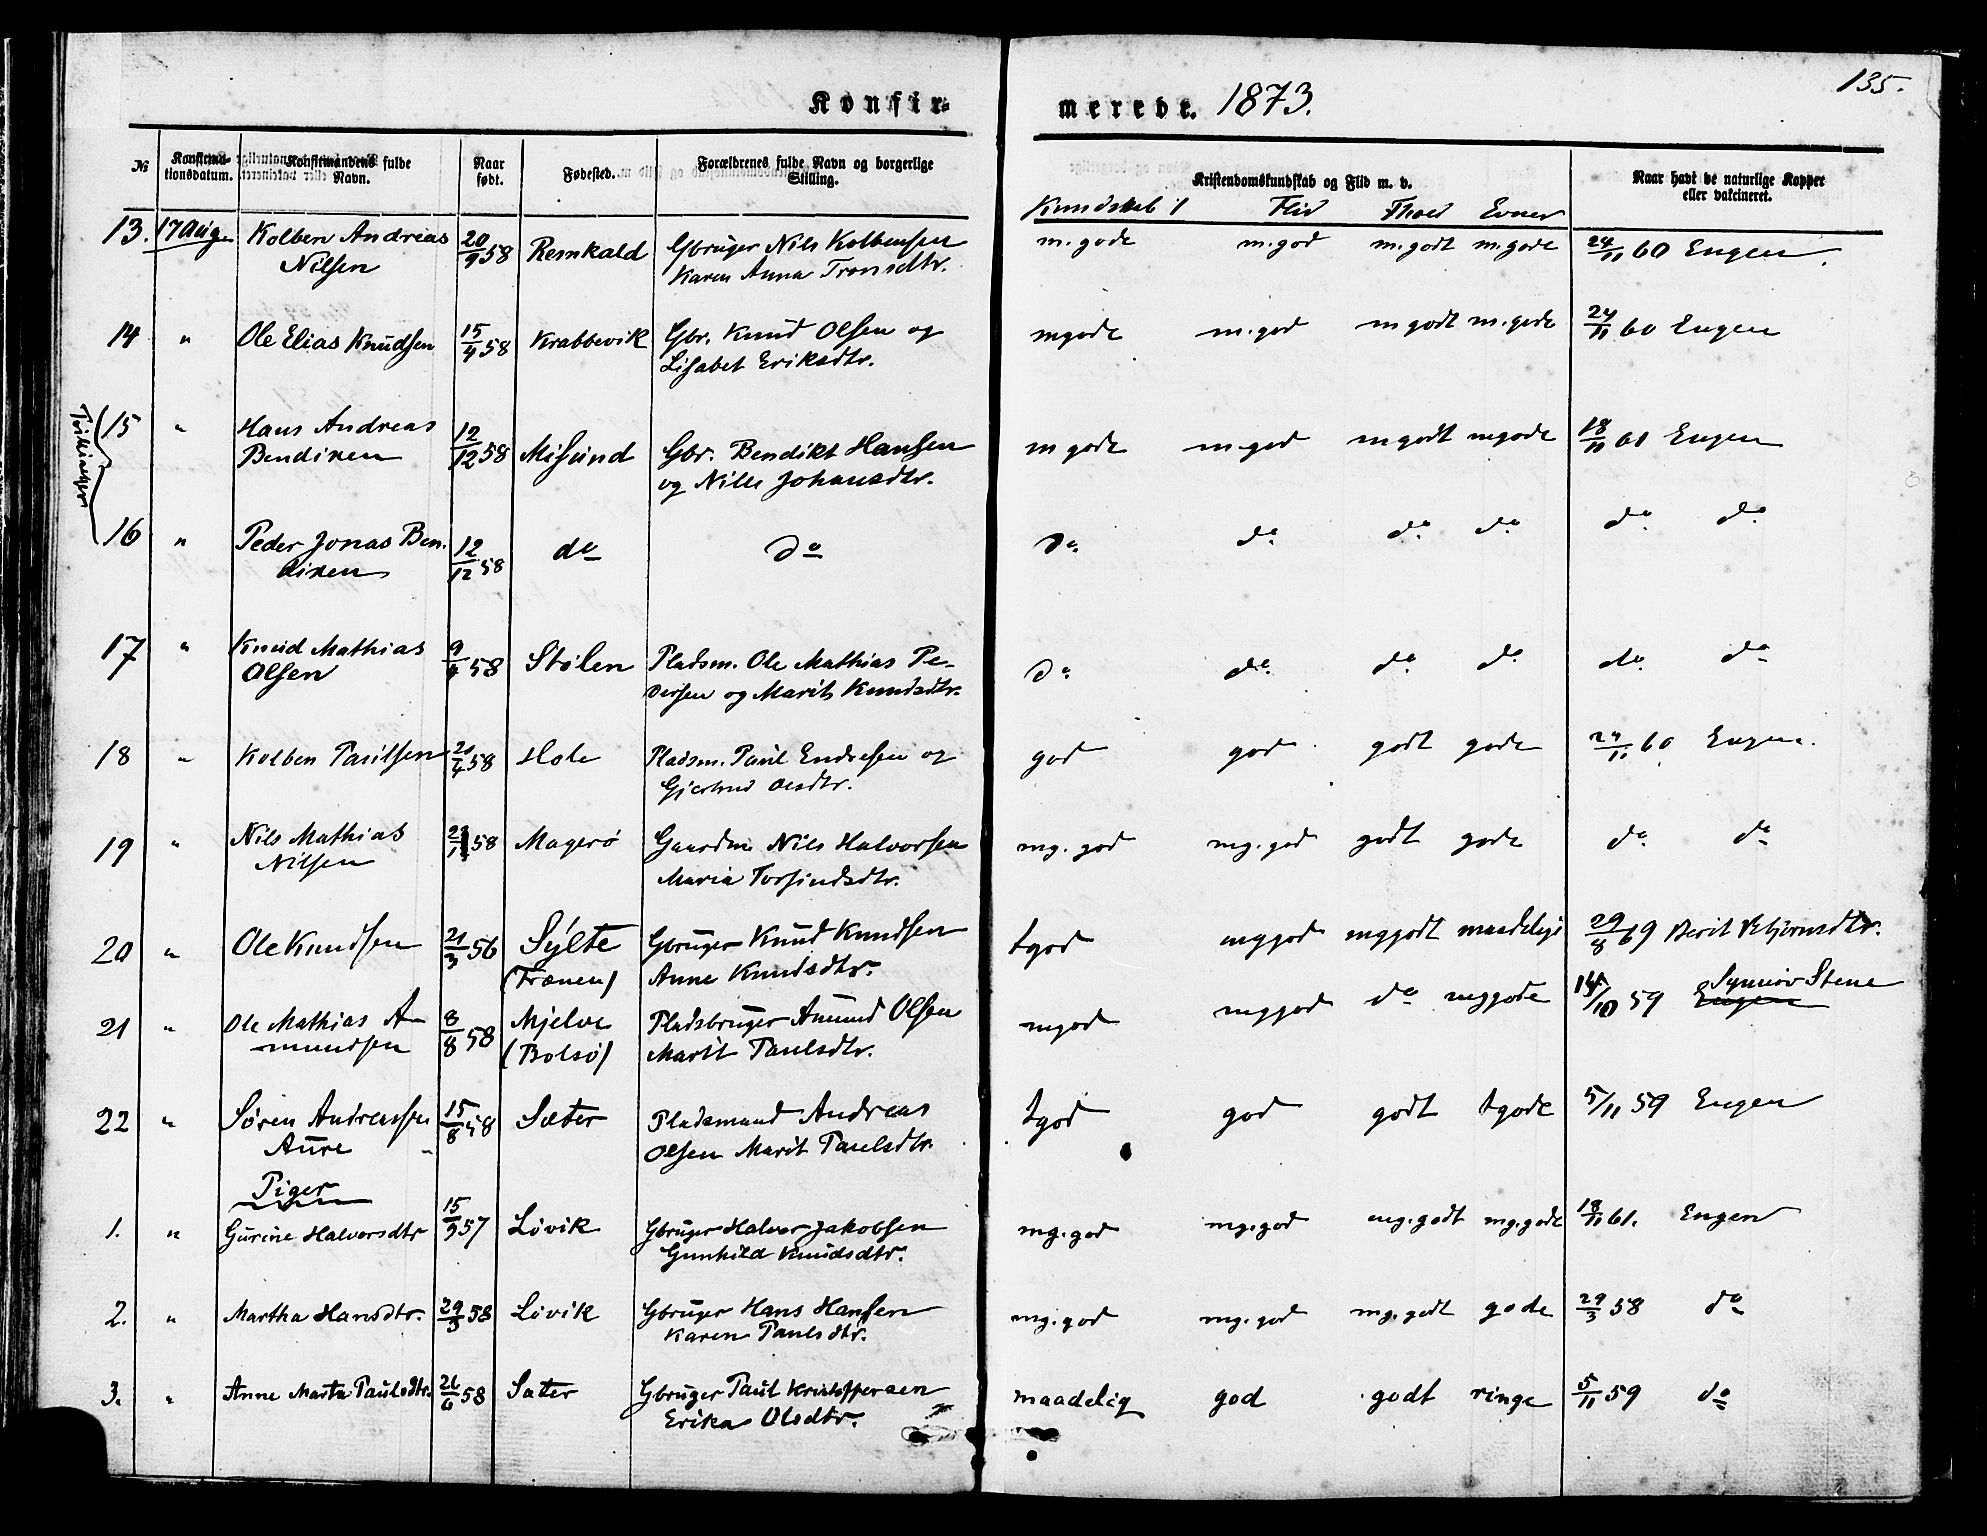 Konfirmerede. 1873. 135.
№ Konfirmationsdatum. Konfirmandens fulde Navn. Naar født. Fødested. Forældrenes fulde Navn og borgerlige Stilling. Kristendomskundskab og Flid m. v. Naar havt de naturlige Kopper eller vakcineret.
Kundskab Flid Evner
13. 17 Aug. Kolben Andreas 20/9 58 Remkald Gbruger Nils Kolbensen m.gode m.god m.godt m.gode 24/11 60 Engen
Nilsen Karen Anna Tronsdtr.
14 " Ole Elias Knudsen 15/4 58 Krabbevik Gbr. Knud Olsen og mgode m.god m godt m.gode 24/11 60 Engen
Lisabet Eriksdtr.
Tvillinger
15 " Hans Andreas 12/12 58 Misund Gbr. Bendikt Hansen m gode m.god m godt mgode 18/11 61 Engen
Bendixen og Nille Johansdtr.
16 " Peder Jonas Ben- 12/12 58 do do do do do do do do
dixen
17 " Knud Mathias 9/4 58 Stølen Pladsm. Ole Mathias Pe- do do do do do do
Olsen dersen og Marit Knudsdtr.
18 " Kolben Paulsen 20/4 58 Hole Pladsm. Paul Endresen og god god godt gode 24/11 60 Engen.
Gjertrud Olsdtr.
19 " Nils Mathias 58 Magerø Gaardm. Nils Halvorsen mg. god mg. god godt gode do do
Nilsen Maria Torfindsdtr.
20 " Ole Knudsen 21/3 56 Sylte Gbruger Knud Knudsen tgod mggod mggodt maadelige 29/8 69 Berit
(Frænen) Anne Knudsdtr.
21 " Ole Mathias A- 8/8 58 Mjelve Pladsbruger Amund Olsen mgod mggod do mggode 14/10 59 Synnøv Stene
mundsen (Bolsø) Marit Paulsdtr. Engen
22 " Søren Andreassen 15/8 58 Sæter Pladsmand Andreas tgod god godt tgode 5/11 59 Engen
Aure Olsen Marit Paulsdtr.
Piger
1. " Gurine Halvorsdtr 15/9 57 Løvik Gbruger Halvor Jakobsen mg. god mg. god mg. godt mg. gode 18/11 61. Engen
Gunhild Knudsdtr.
2. " Martha Hansdtr. 29/3 58 Løvik Gbruger Hans Hansen mg. god mg. god mg. godt gode 29/3 58 do
Karen Paulsdtr.
3. " Anne Marta Paulsdtr. 26/6 58 Sæter Gbruger Paul Kristoffersen maadelig god godt ringe 5/11 59 do
Erika Olsdtr.